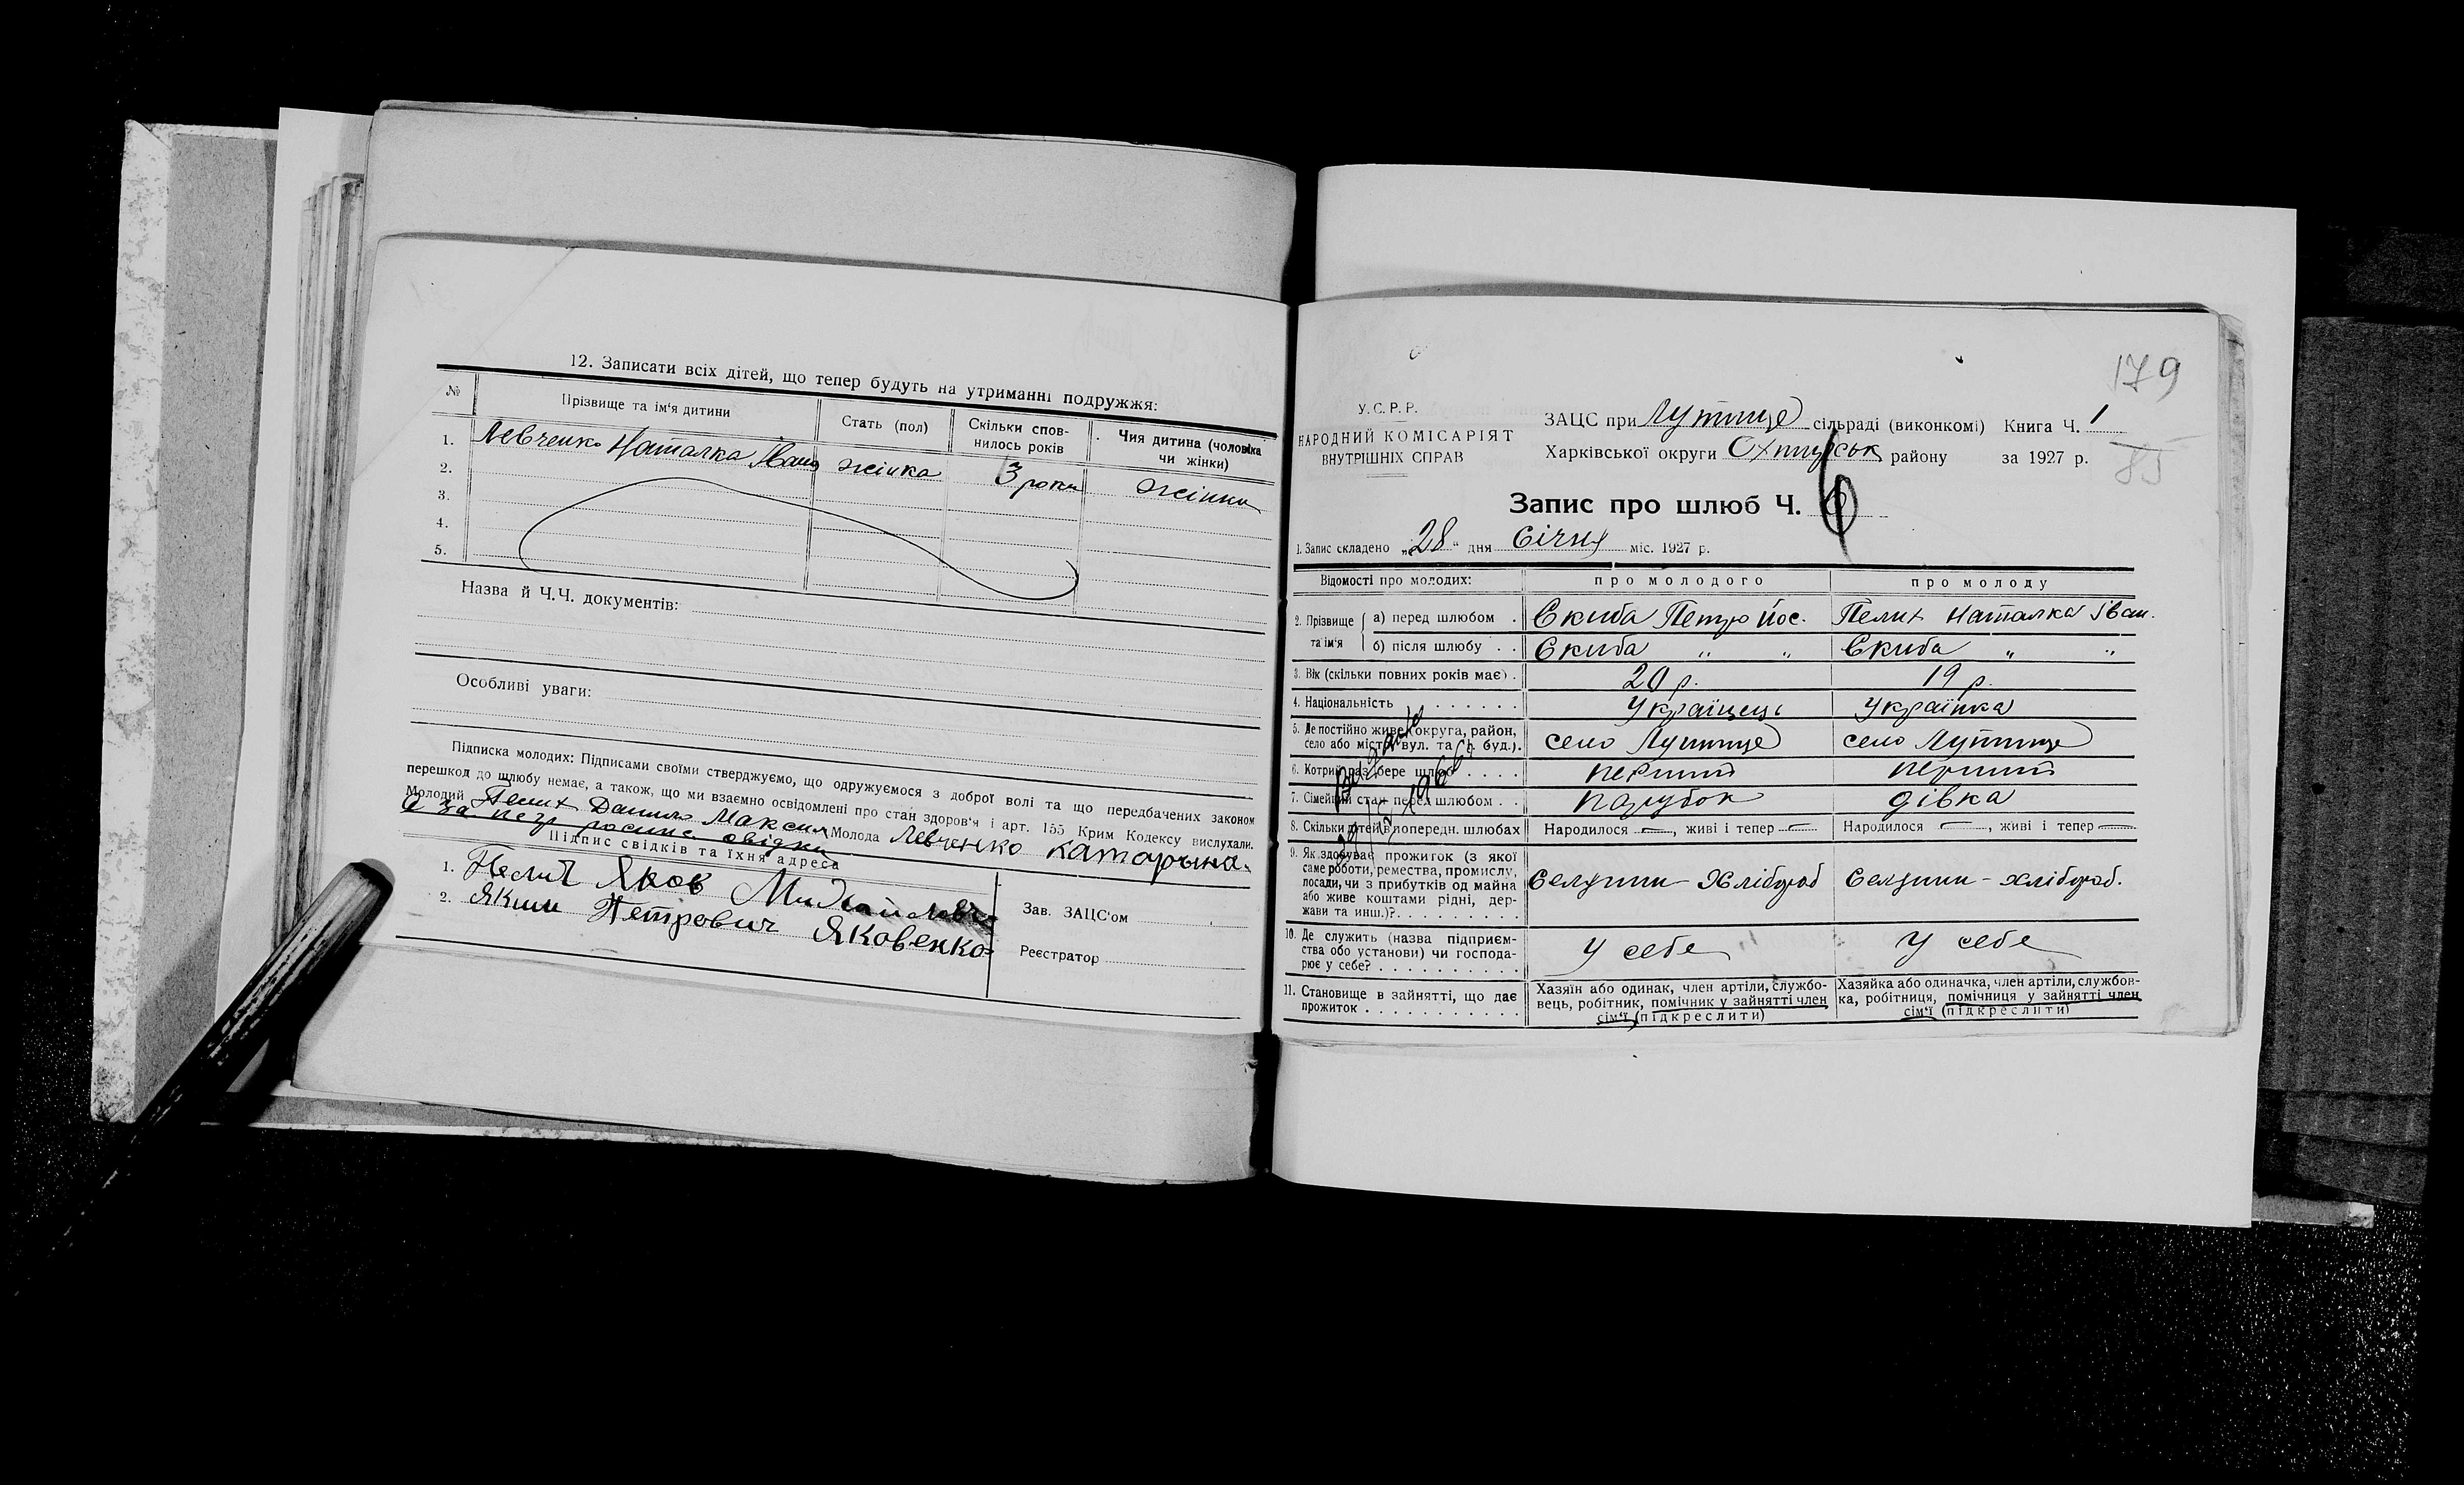 12. Записати всіх дітей, що тепер будуть на утриманні подружжя:
№ Прізвище та ім'я дитини Стать (пол) Скільки спов-нилось років Чия дитина (чоловіка чи жінки)
1. Левченко Наталка Іван жінка 3 роки жінки
2.
3.
4.
5.
Назва й Ч.Ч. документів:
Особливі уваги:
Підписка молодих: Підписами своїми стверджуємо, що одружуємося з доброї волі та що передбачених законом
перешкод до шлюбу немає, а також, що ми взаємно освідомлені про стан здоров'я і арт. 155 Крим Кодексу вислухали.
Молодий Пелих Данило Максим Молода Левченко Катарына.
Підпис свідків та їхня адреса
1. Пелих Яков Михайлович
2. Яким Петрович Яковенко
Зав. ЗАЦС'ом
Реєстратор
179
У.С.Р.Р.
НАРОДНИЙ КОМІСАРІЯТ
ВНУТРІШНІХ СПРАВ
ЗАЦС при Лутище сільраді (виконкомі) Книга Ч. 1
Харківської округи Охтирськ району за 1927 р.
85
Запис про шлюб Ч. 6
1. Запис складено „28" дня Січня міс. 1927 р.
Відомості про молодих: про молодого про молоду
2. Прізвище та ім'я а) перед шлюбом . Скиба Петро Йос. Пелих Наталка Іван.
б) після шлюбу . . Скиба „ „ Скиба „ „
3. Вік (скільки повних років має) . 20 р. 19 р.
4. Національність . . . . . . Українець Українка
5. Де постійно живе (округа, район,
село або місто, вул. та Ч. буд.). село Лутище село Лутище
6. Котрий раз бере шлюб . . . . перший перший
7. Сімейний стан перед шлюбом . . парубок дівка
8. Скільки дітей в попередн. шлюбах Народилося —, живі і тепер — Народилося —, живі і тепер —
9. Як здобуває прожиток (з якої
саме роботи, ремества, промислу,
посади, чи з прибутків од майна
або живе коштами рідні, дер-
жави та инш.)? . . . . . . . . . Селянин - Хлібороб Селянин - хлібороб.
10. Де служить (назва підприєм-
ства обо установи) чи господа-
рює у себе? . . . . . . . . . . У себе У себе
11. Становище в зайнятті, що дає
прожиток . . . . . . . . . . .
Хазяїн або одинак, член артіли, службо-
вець, робітник, помічник у зайнятті член
сім'ї (підкреслити)
Хазяйка або одиначка, член артіли, службов-
ка, робітниця, помічниця у зайнятті член
сім'ї (підкреслити)